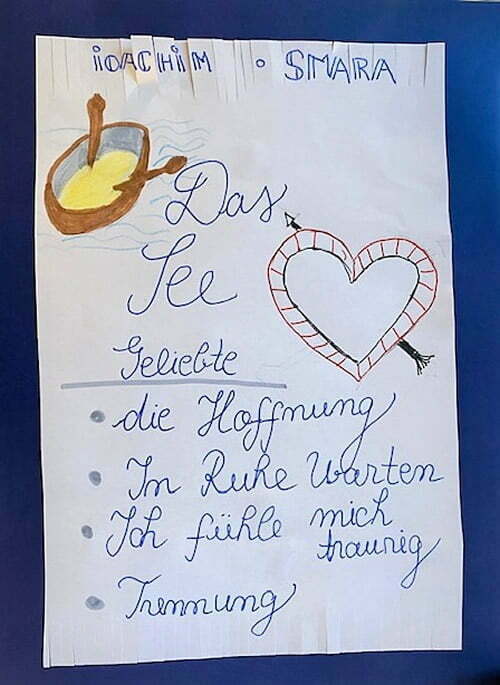 iOACHiM • SMARA
Das
See
Geliebte
• die Hoffnung
• In Ruhe Warten
• Ich fühle mich
traurig
• Trennung